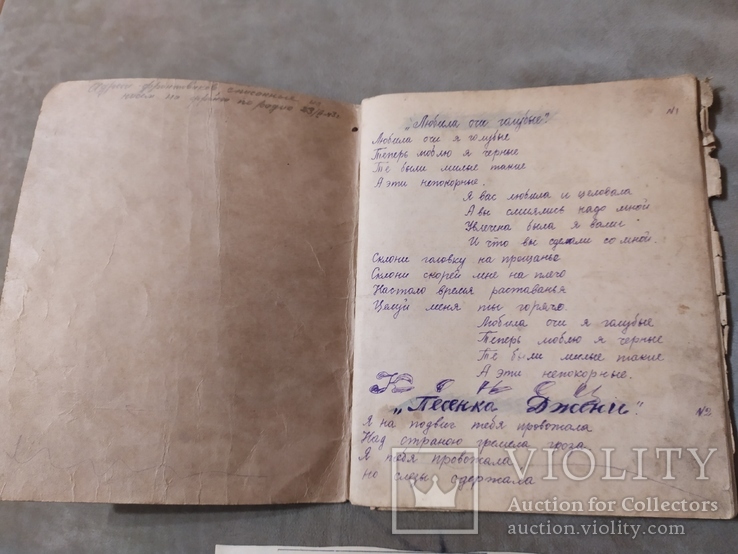 фронтовое
по радио
№1
„Любила очи голубые"
Любила очи я голубые
Теперь люблю я черные
Те были милые такие
А эти непокорные.
Я вас любила и целовала
А вы смиялись надо мной
Увлечена была я вами
И что вы сделали со мной.
Склони головку на прощанье
Склони скорей мне на плечо
Настало время раставанья
Целуй меня ты горячо.
Любила очи я голубые
Теперь люблю я черные
Те были милые такие
А эти непокорные.
„Песенка Джени".
№2
Я на подвиг тебя провожала
Над страною гремела гроза
Я тебя провожала
но слезы сдержала
VIOLITY
Auction for Collectors
auction.violity.com